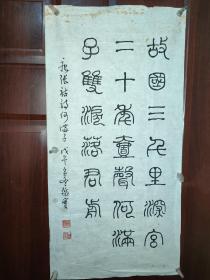 故國三千里深宮
二十年壹聲何滿
子雙淚落君前
張祜詩何滿子戊午